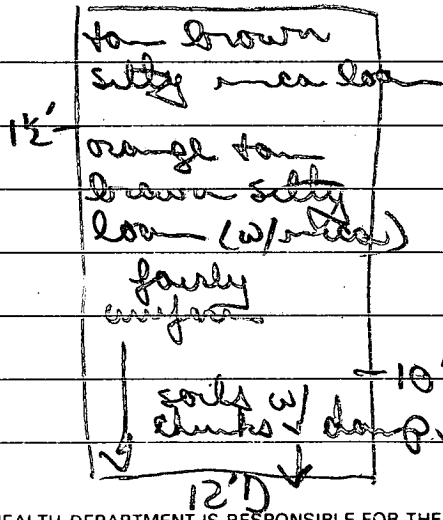 tan brown
silty mica loam
1½'
orange tan
brown silty
loam (w/mica)
fairly
uniform
10'
soils w/
chunks & damp.
12'D
HEALTH DEPARTMENT IS RESPONSIBLE FOR THE